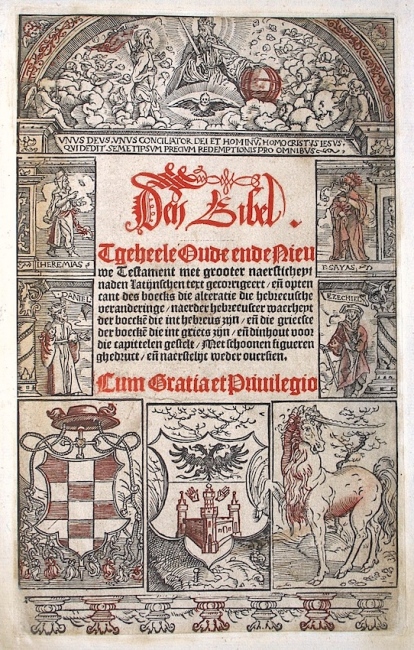 VNVS DEVS, VNVS CONCILIATOR DEI ET HOMINV̄, HOMO CRISTVS IESVS,
QVI DEDIT SEMETIPSVM PRECIVM REDEMPTIONIS PRO OMNIBVS
Den Bibel.
Tgeheele Oude ende Nieu
we Testament met grooter naersticheyt
naden Latijnschen text gecorrigeert / eñ opten
cant des boecks die alteratie die hebreeusche
veranderinge / naerder hebreeuscer waerheyt
der boeckē die int hebreus zijn / eñ die grieesce
der boeckē die int griecs zijn / eñ dinhout voor
die capittelen gestelt / Met schoonen figueren
ghedruct / eñ naerstelijc weder ouersien.
Cum Gratia et Priuilegio
IHEREMIAS
ESAYAS
DANIEL
EZECHIEL